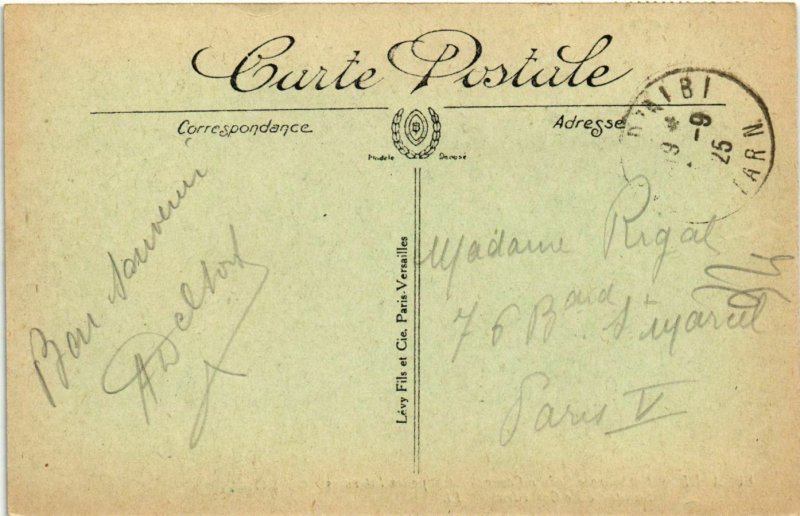 Carte Postale
Correspondance
Adresse
Modèle Déposé
D'ALBI
TARN
19 * -9
25
Bon souvenir
ADelbort
Lévy Fils et Cie, Paris-Versailles
Madame Rigal
76 Bard St Marcel
Paris V